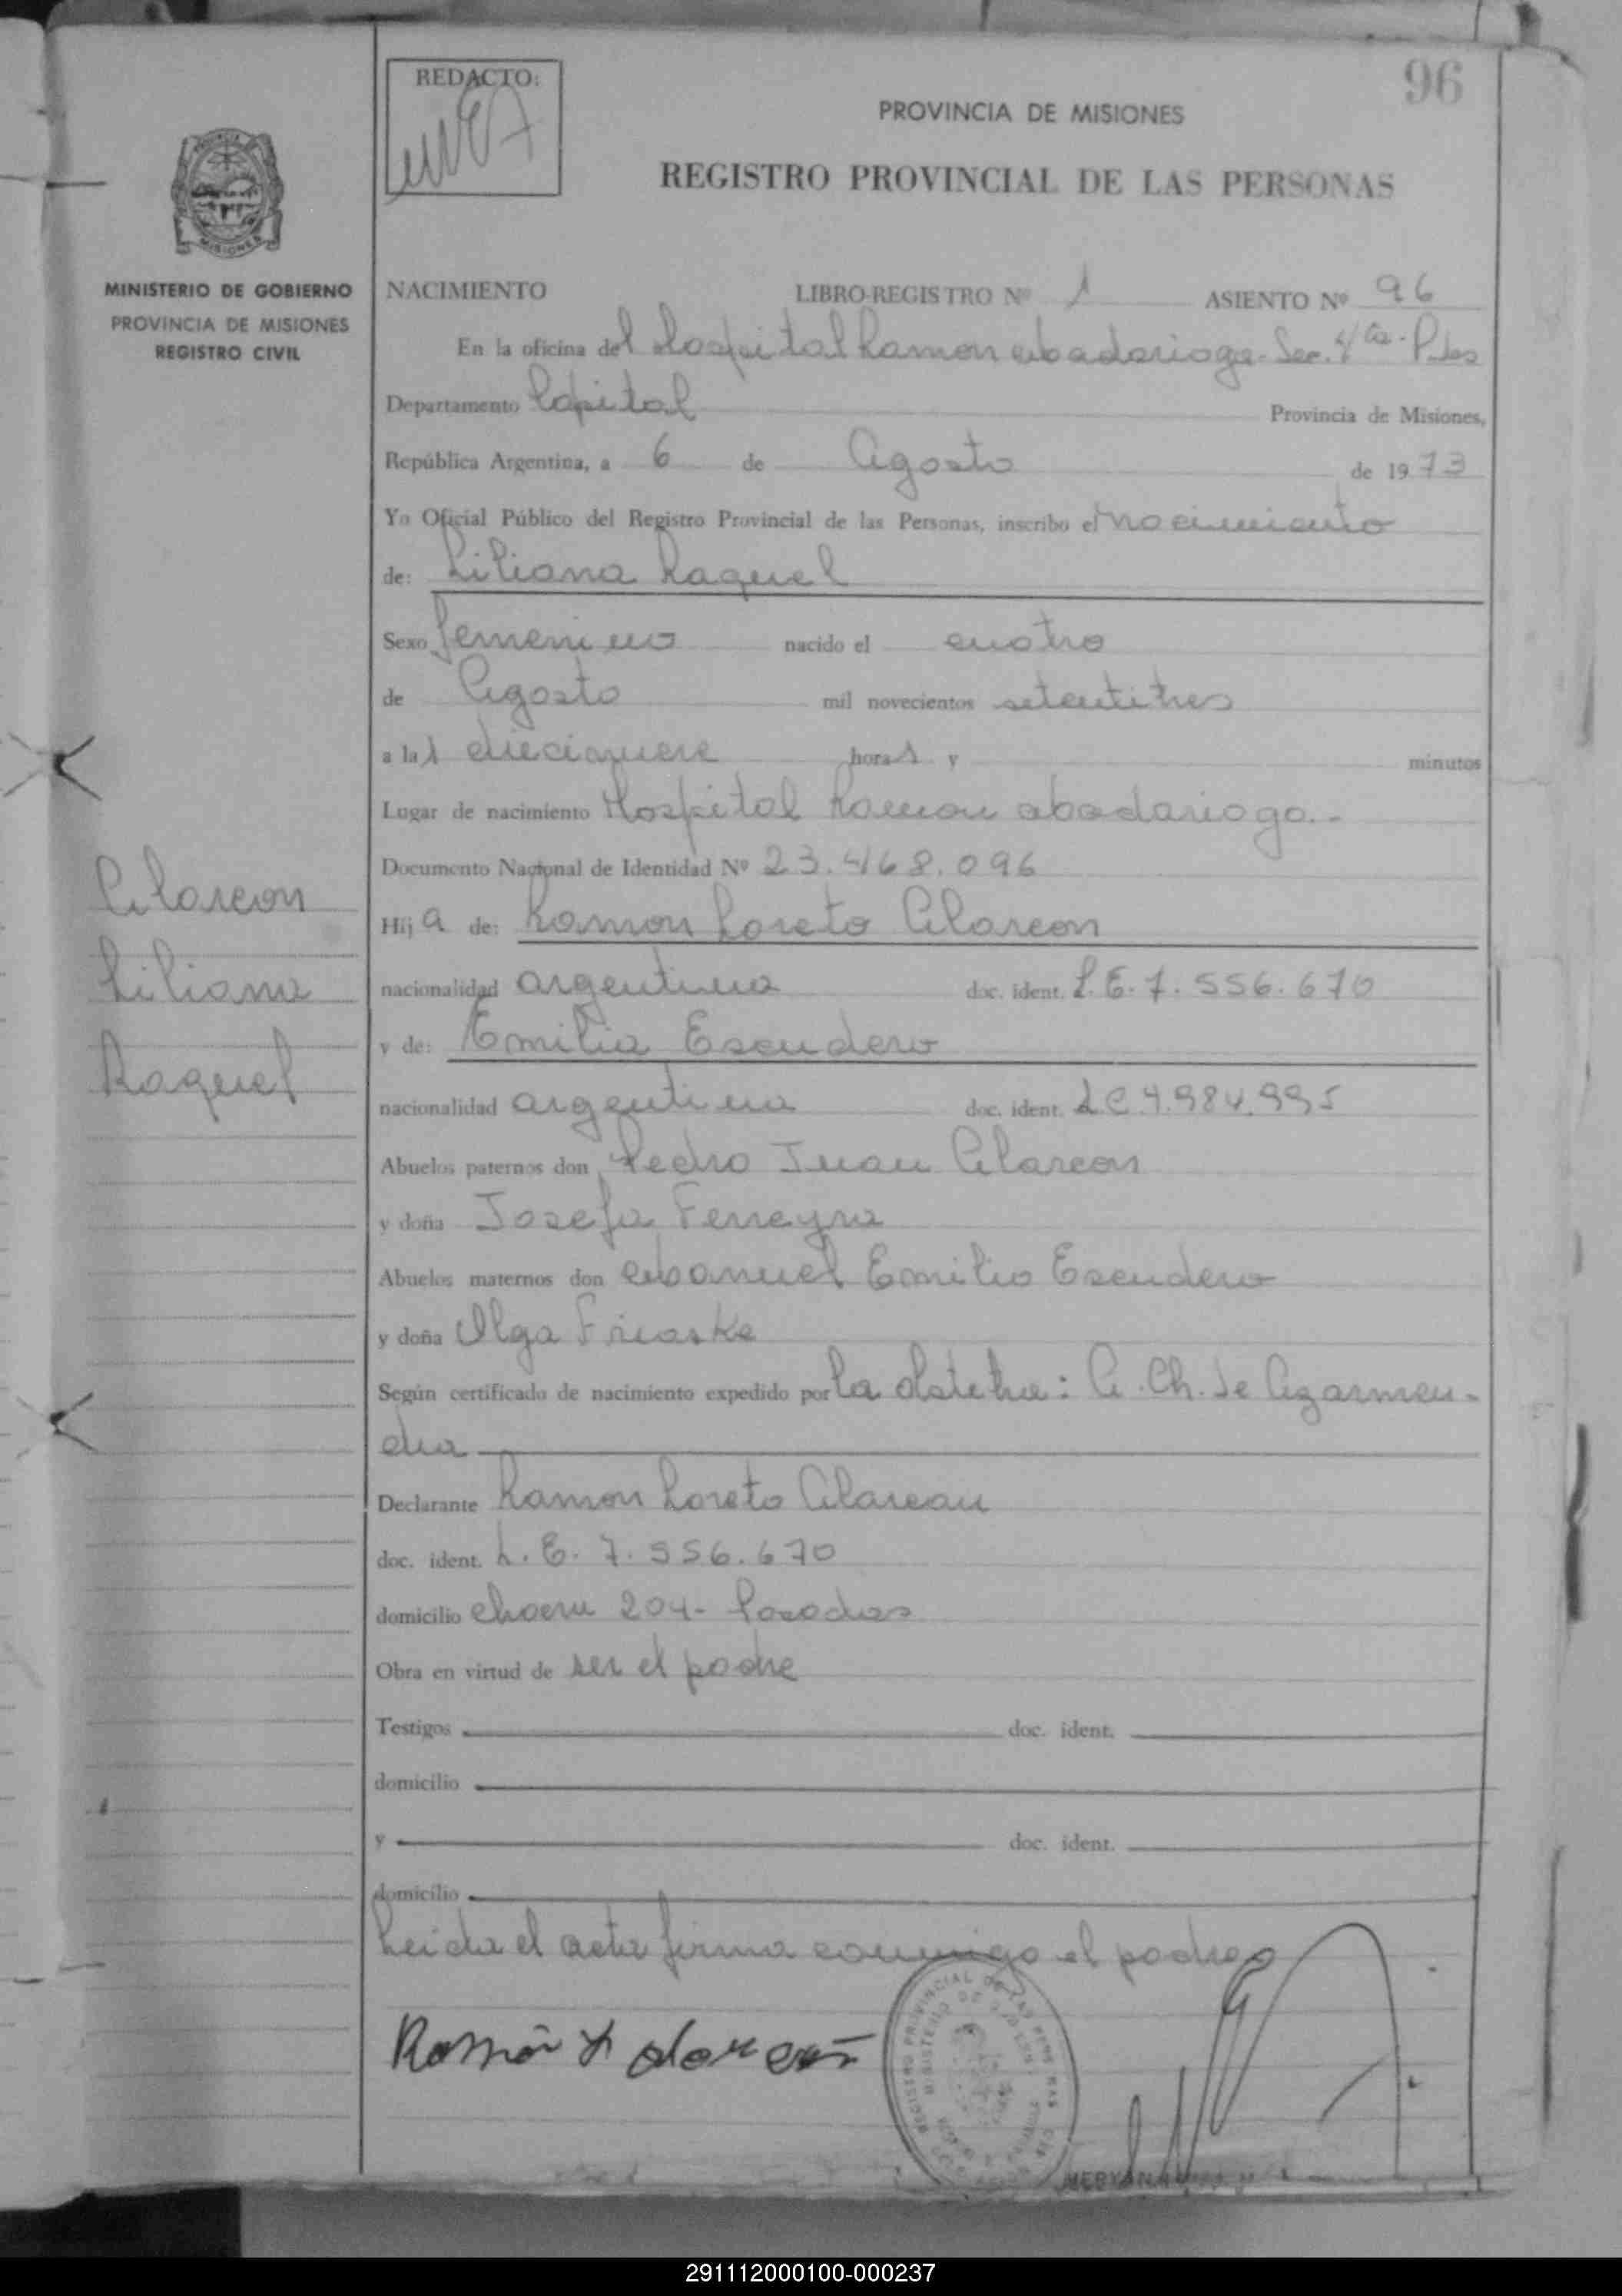 96
REDACTO:
PROVINCIA DE MISIONES
REGISTRO PROVINCIAL DE LAS PERSONAS
MINISTERIO DE GOBIERNO
PROVINCIA DE MISIONES
REGISTRO CIVIL
NACIMIENTO LIBRO-REGISTRO Nº 1 ASIENTO Nº 96
En la oficina del Hospital Ramon Madariaga - Sec. 4ta. P.das
Departamento Capital Provincia de Misiones,
República Argentina, a 6 de Agosto de 1973
Yo Oficial Público del Registro Provincial de las Personas, inscribo el nacimiento
de: Liliana Raquel
Sexo femenino nacido el cuatro
de Agosto mil novecientos setentitres
a las diecinueve horas y minutos
Lugar de nacimiento Hospital Ramon Madariaga.-
Documento Nacional de Identidad Nº 23.468.096
Hija de: Ramon Loreto Alarcon
nacionalidad argentina doc. ident. L.E. 7.556.670
y de: Emilia Escudero
nacionalidad argentina doc. ident. LC 4.984.995
Abuelos paternos don Pedro Juan Alarcon
y doña Josefa Ferreyra
Abuelos maternos don Manuel Emilio Escudero
y doña Olga
Según certificado de nacimiento expedido por la obstetra: A. Ch. de Agarmen-
dia
Declarante Ramon Loreto Alarcon
doc. ident. L.E. 7.556.670
domicilio Chacra 204- Posadas
Obra en virtud de ser el padre
Testigos doc. ident.
domicilio
y doc. ident.
domicilio
Leida el acta firma conmigo el padre
Ramón L Alarcón
REGISTRO PROVINCIAL DE LAS PERSONAS
MINISTERIO DE
Alarcon
Liliana
Raquel
291112000100-000237